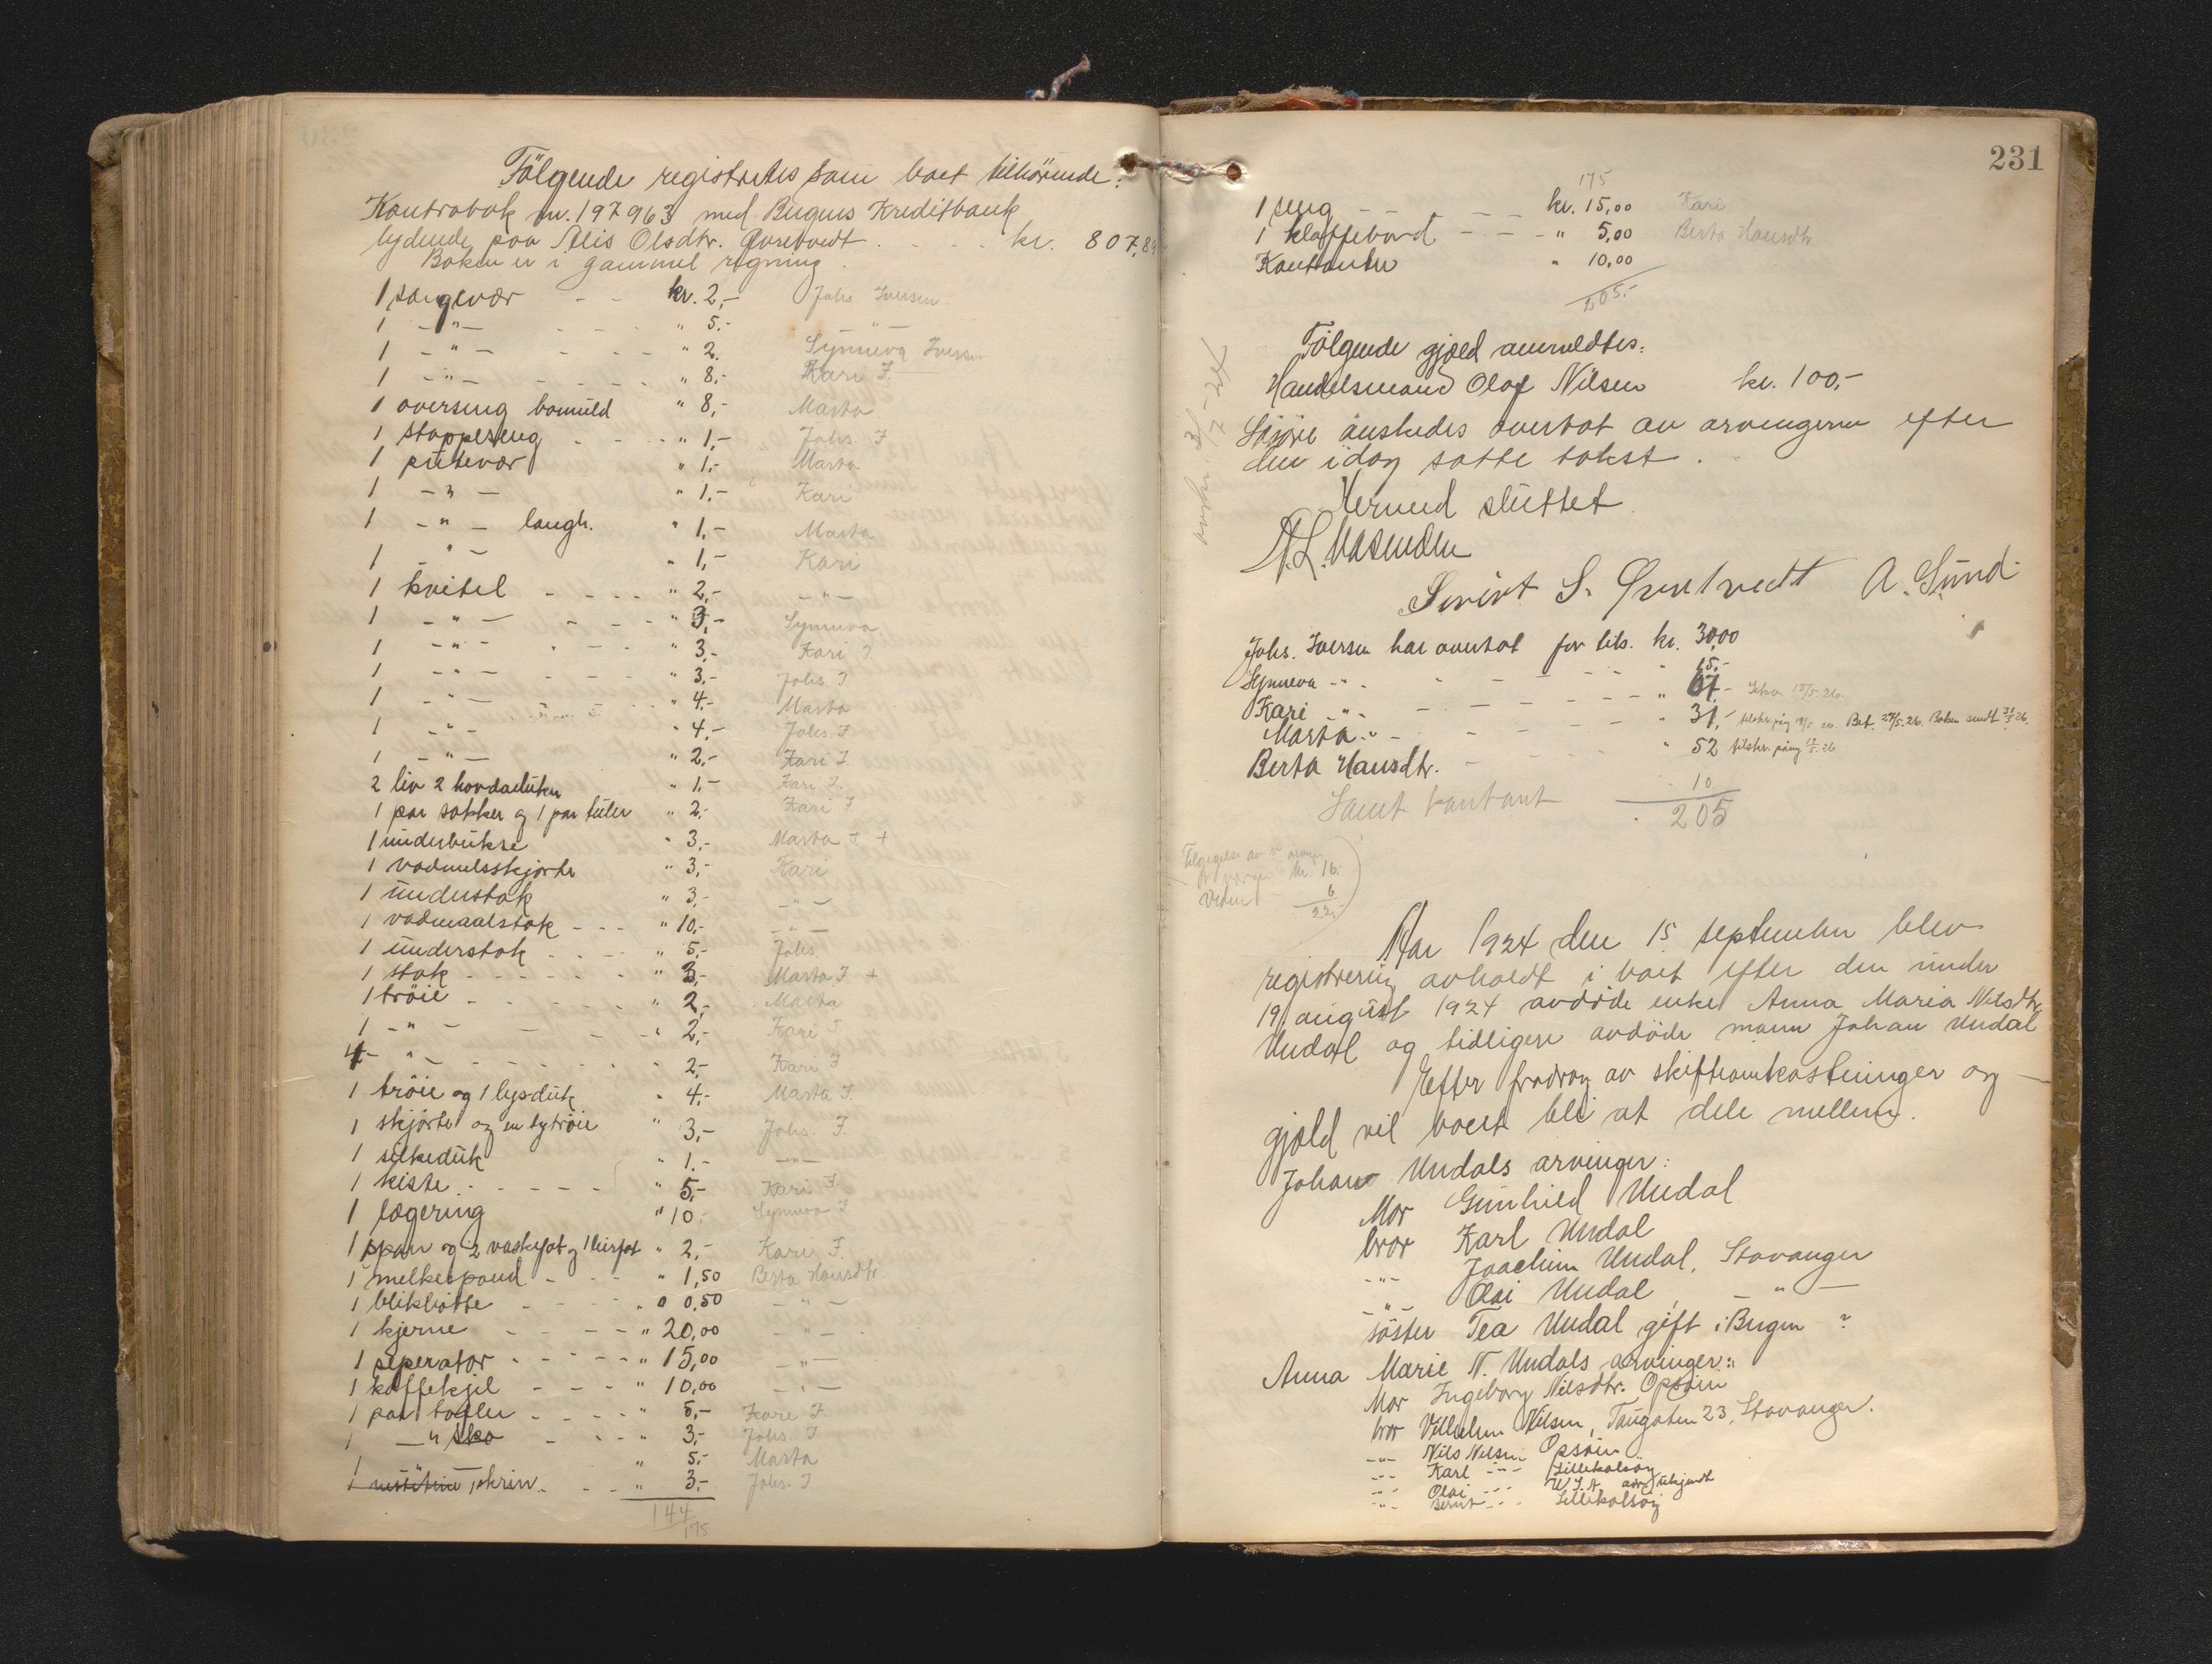 Følgende registrertes som boet tilhørende:
Kontrabok nr. 197963 med Bergens Kreditbank
lydende paa Olsdtr. Øvretvedt . . . . kr. 807,84
Boken er i gammel regning.
1 sengevær - - kr. 2,- Johs Iversen
1 -"- - - - " 5.- -"-
1 -"- - - - " 2. Synneva Iversen
1 -"- - - - " 8,- Kari I.
1 overseng bomuld " 8,- Marta
1 stoppeseng - - - " 1,- Johs I
1 putevær " 1,- Marta
1 -"- " 1,- Kari
1 -"- langh. " 1,- Marta
1 -"- " 1,- Kari
1 kvitel - - - - " 2,- -"-
1 -"- - - - " 3,- Synneva
1 -"- - - - " 3,- Kari I.
1 -"- - - - " 3,- Johs. I
1 -"- " 4,- Marta
1 -"- " 4,- Johs. I
1 -"- " 2,- Kari I
2 liv 2 hovdaduker " 1,- Kari I.
1 par sokker og 1 par " 2,- Kari I
1 underbukse " 3,- Marta I +
1 vadmelsskjorte " 3,- Kari
1 understak " 3,- -"-
1 vadmaalstak - - - " 10,- -"-
1 understak - - - - " 5,- Johs.
1 stak - - - - - " 3,- Marta I +
1 trøie - - - - - " 2,- Marta
1 -"- - - - - " 2,- Kari I
1 -"- - - - - " 2,- Kari I
1 trøie og 1 lysduk " 4,- Marta I.
1 skjørte og en trøie " 3,- Johs. I.
1 silkeduk " 1.- -"-
1 kiste - - - - - " 5,- Kari I
1 " 10.- Synneva I
1 span og 2 vaskefat og 1 leirfat " 2,- Kari I.
1 melkespand - - - " 1,50 Berta Hansdtr.
1 blikbøtte - - - - " 0,50 -"-
1 kjerne - - - - " 20,00 -"-
1 seperator - - - - " 15,00 -"-
1 kaffekjel - - - " 10,00 -"-
1 par tøfler - - - - " 5,- Kari I.
1 -"- sko - - - " 3,- Johs. I
1 -"- " 5,- Marta
1 skrin - - - " 3,- Johs. I
144
175
231
175
1 seng - - - - kr. 15,00 Kari
1 klaffebord - - - " 5,00 Berta Hansdtr.
Kontanter " 10,00
205.-
Følgende gjæld anmeldtes:
Handelsmand Olaf Nilsen kr. 100,-
Løsøre ønskedes overtat av arvingerne efter
den idag satte takst.
Hermed sluttet
A. L. Vasenden
Sivert S. Øvretvedt A. Sund
Johs. Iversen har overtat for tils. kr. 30,00
Synneva -"- - - - - " 15,-
Kari -"- - - - - " 67,-
Marta -"- - - - - " 31,- tilskr. paany 18/5 26. Bet. 27/5.26. Boken sendt 31/5 26.
Berta Hansdtr. - - " 52 tilskr. paany 18/5 26
Samt kontant 10
205
kr. 16.
Veden - 6
22,-
Aar 1924 den 15 september blev
registrering avholdt i boet efter den under
19 august 1924 avdøde enke Anna Maria Nilsdtr.
Undal og tidligere avdøde mann Johan Undal
Efter fradrag av skifteomkostninger og
gjæld vil boet bli at dele mellem.
Johan Undals arvinger:
Mor Gunhild Undal
bror Karl Undal
-"- Joachim Undal, Stavanger
-"- Olai Undal, -"-
søster Tea Undal gift i Bergen ?
Anna Marie N. Undals arvinger:
Mor Ingeborg Nilsdtr. Opsøin
bror Vilhelm Nilsen, Taugaten 23, Stavanger.
-"- Nils Nilsen Opsøin
-"- Karl -"- Lillekalsøy
-"- Olai -"- U.S.A adr. ukjendt
-"- Bernt -"- Lillekalsøy